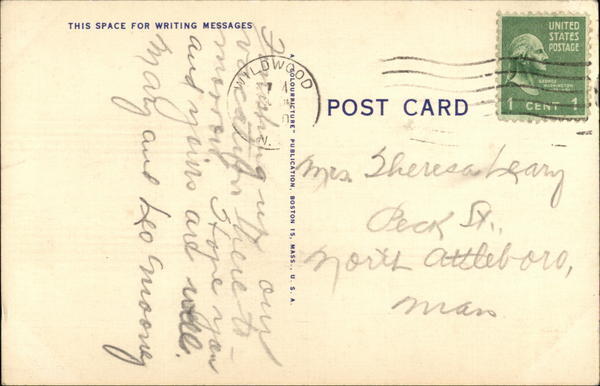 THIS SPACE FOR WRITING MESSAGES
Finishing up our
vacation here to-
morrow. Hope you
and yours are well.
Mary and Leo Mooney
A "COLOURPICTURE" PUBLICATION, BOSTON 15, MASS., U. S. A.
WILDWOOD
N.
POST CARD
UNITED
STATES
POSTAGE
GEORGE
WASHINGTON
1 CENT 1
Mrs. Theresa Leary
Peck St.,
North Attleboro,
Mass